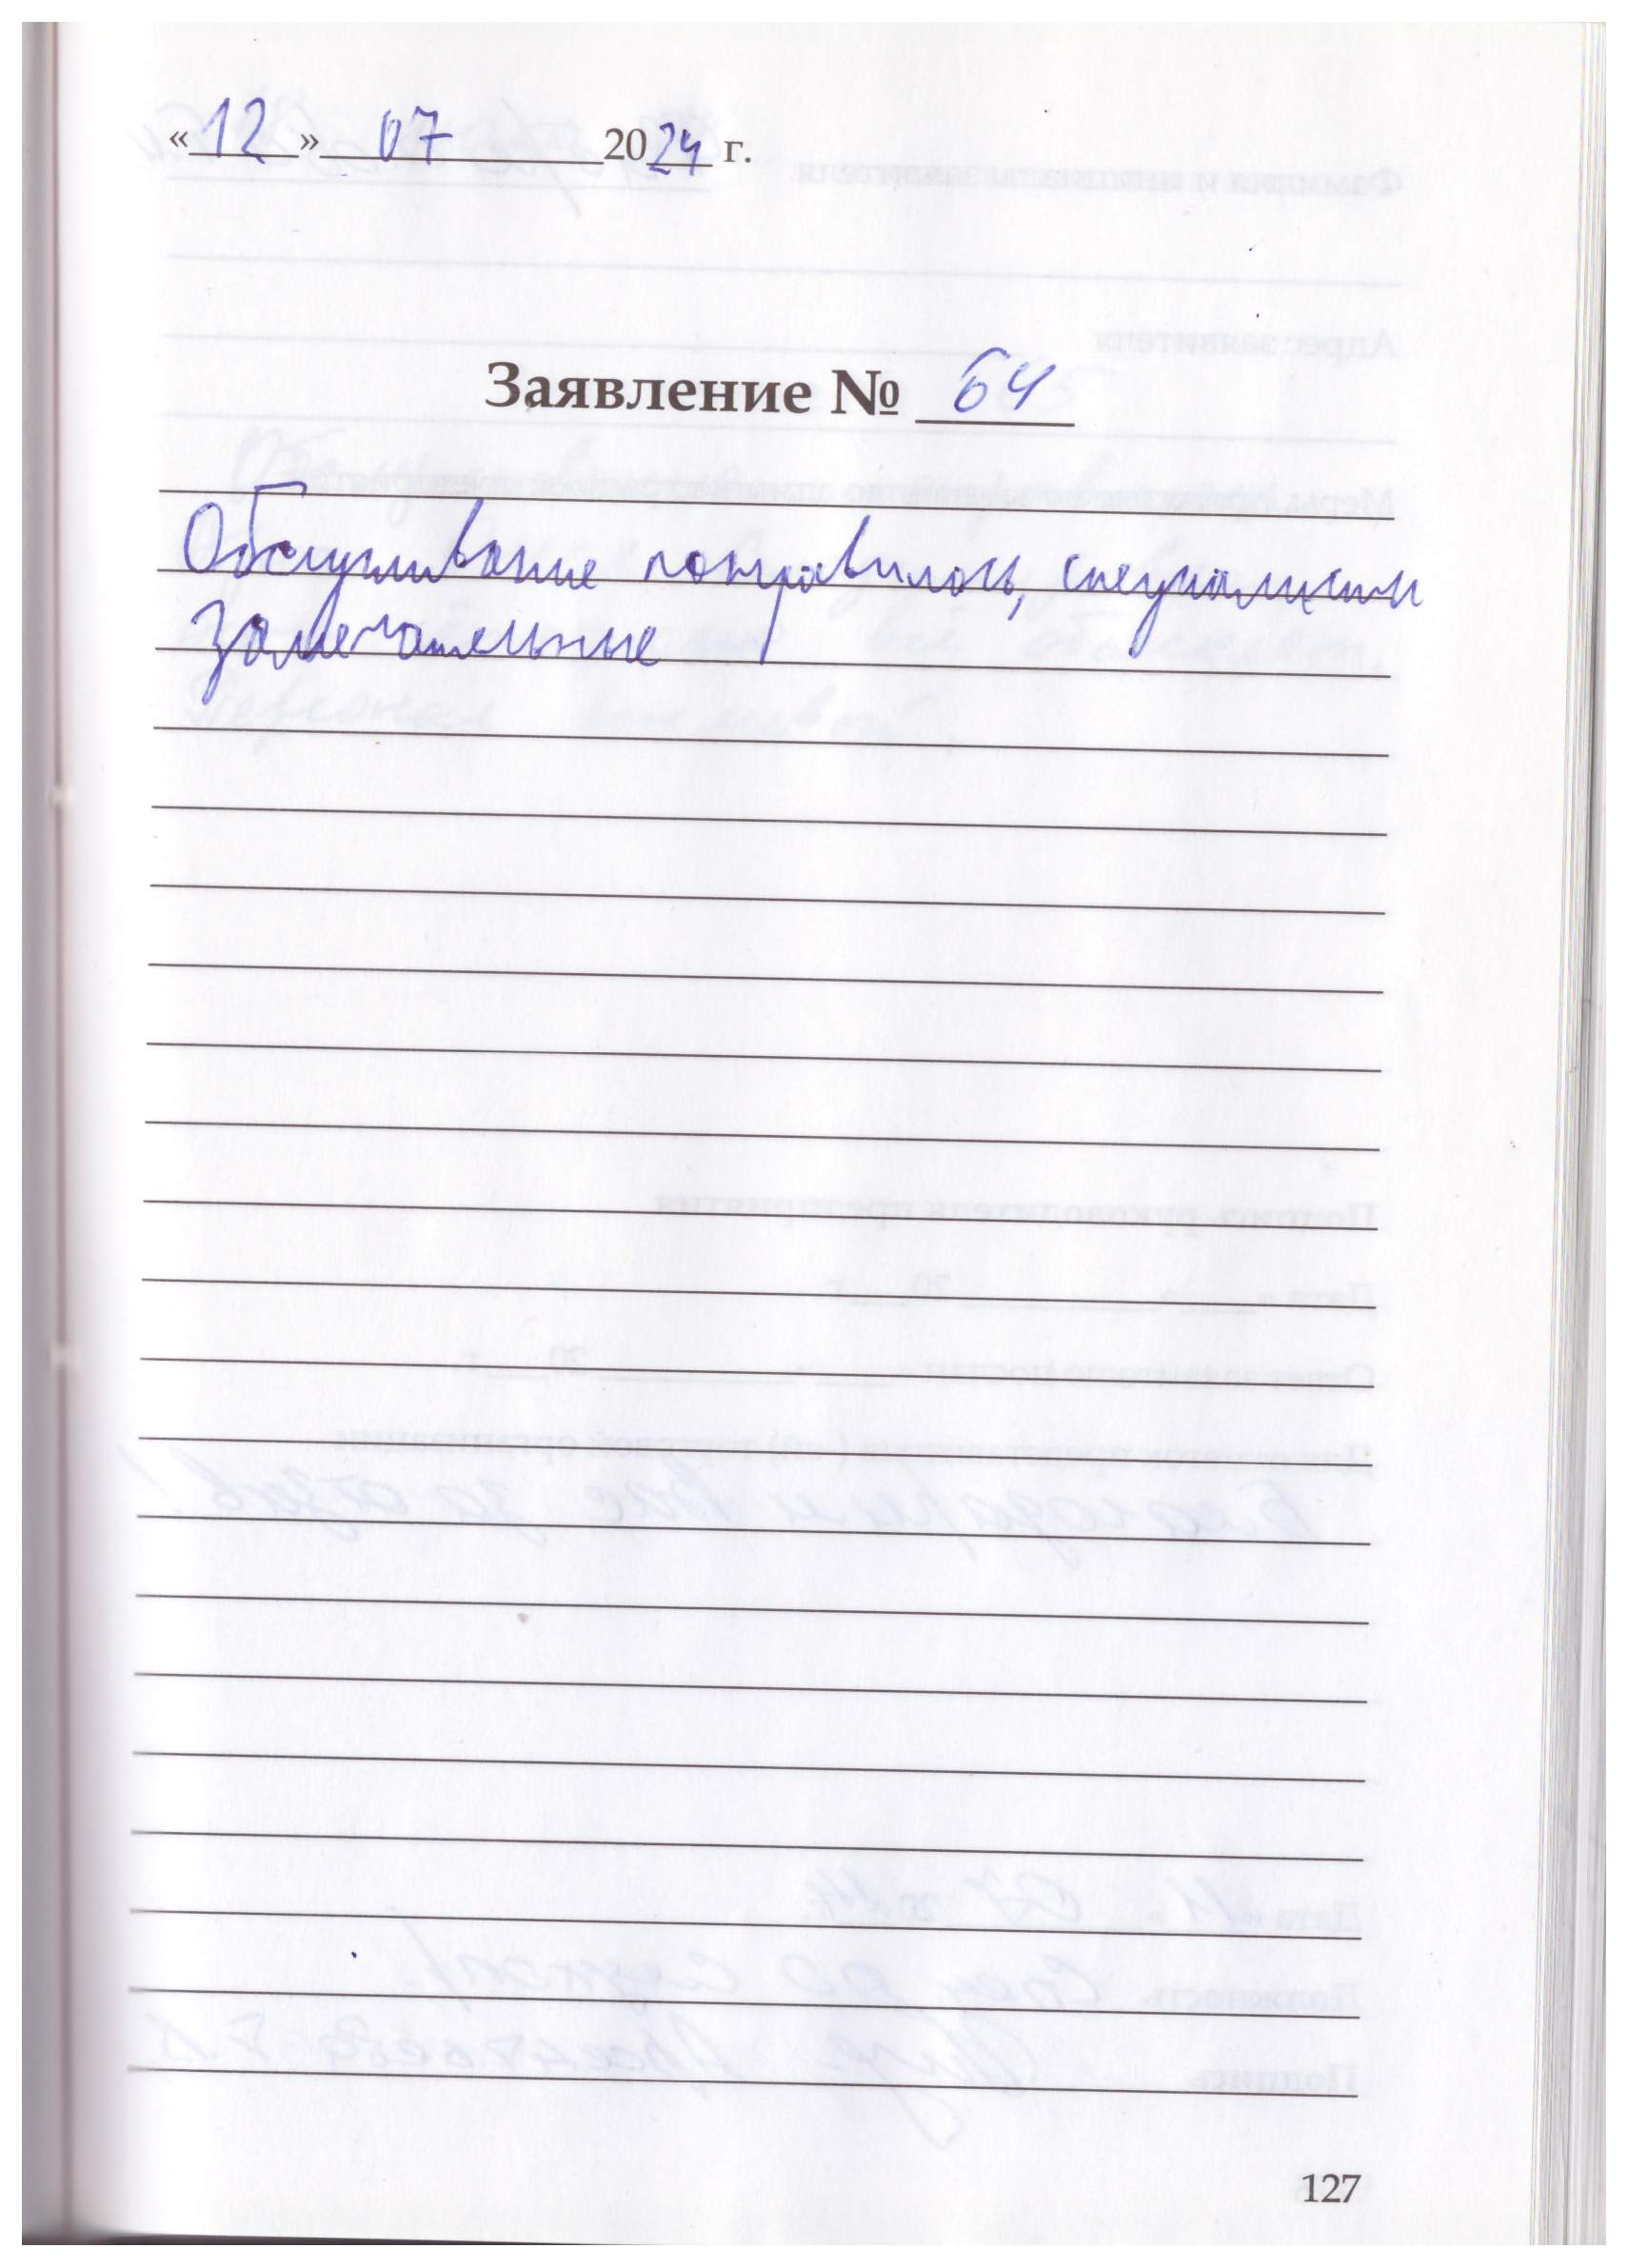 «12» 07 2024 г.
Заявление № 64
Обслуживание понравилось, специалисты
замечательные
127